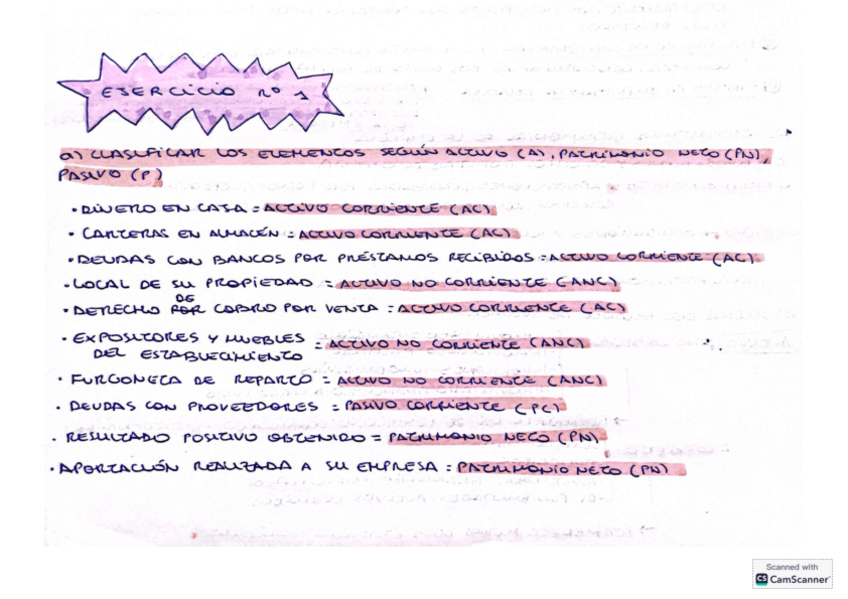 EJERCICIO Nº 1
a) CLASIFICAR LOS ELEMENTOS SEGÚN ACTIVO (A), PATRIMONIO NETO (PN),
PASIVO (P)
• DINERO EN CAJA = ACTIVO CORRIENTE (AC)
• CARTERAS EN ALMACÉN = ACTIVO CORRIENTE (AC)
• DEUDAS CON BANCOS POR PRÉSTAMOS RECIBIDOS = ACTIVO CORRIENTE (AC)
• LOCAL DE SU PROPIEDAD = ACTIVO NO CORRIENTE (ANC)
• DERECHO DE COBRO POR VENTA = ACTIVO CORRIENTE (AC)
• EXPOSITORES Y MUEBLES DEL ESTABLECIMIENTO = ACTIVO NO CORRIENTE (ANC)
• FURGONETA DE REPARTO = ACTIVO NO CORRIENTE (ANC)
• DEUDAS CON PROVEEDORES = PASIVO CORRIENTE (PC)
• RESULTADO POSITIVO OBTENIDO = PATRIMONIO NETO (PN)
• APORTACIÓN REALIZADA A SU EMPRESA = PATRIMONIO NETO (PN)
Scanned with
CS CamScanner